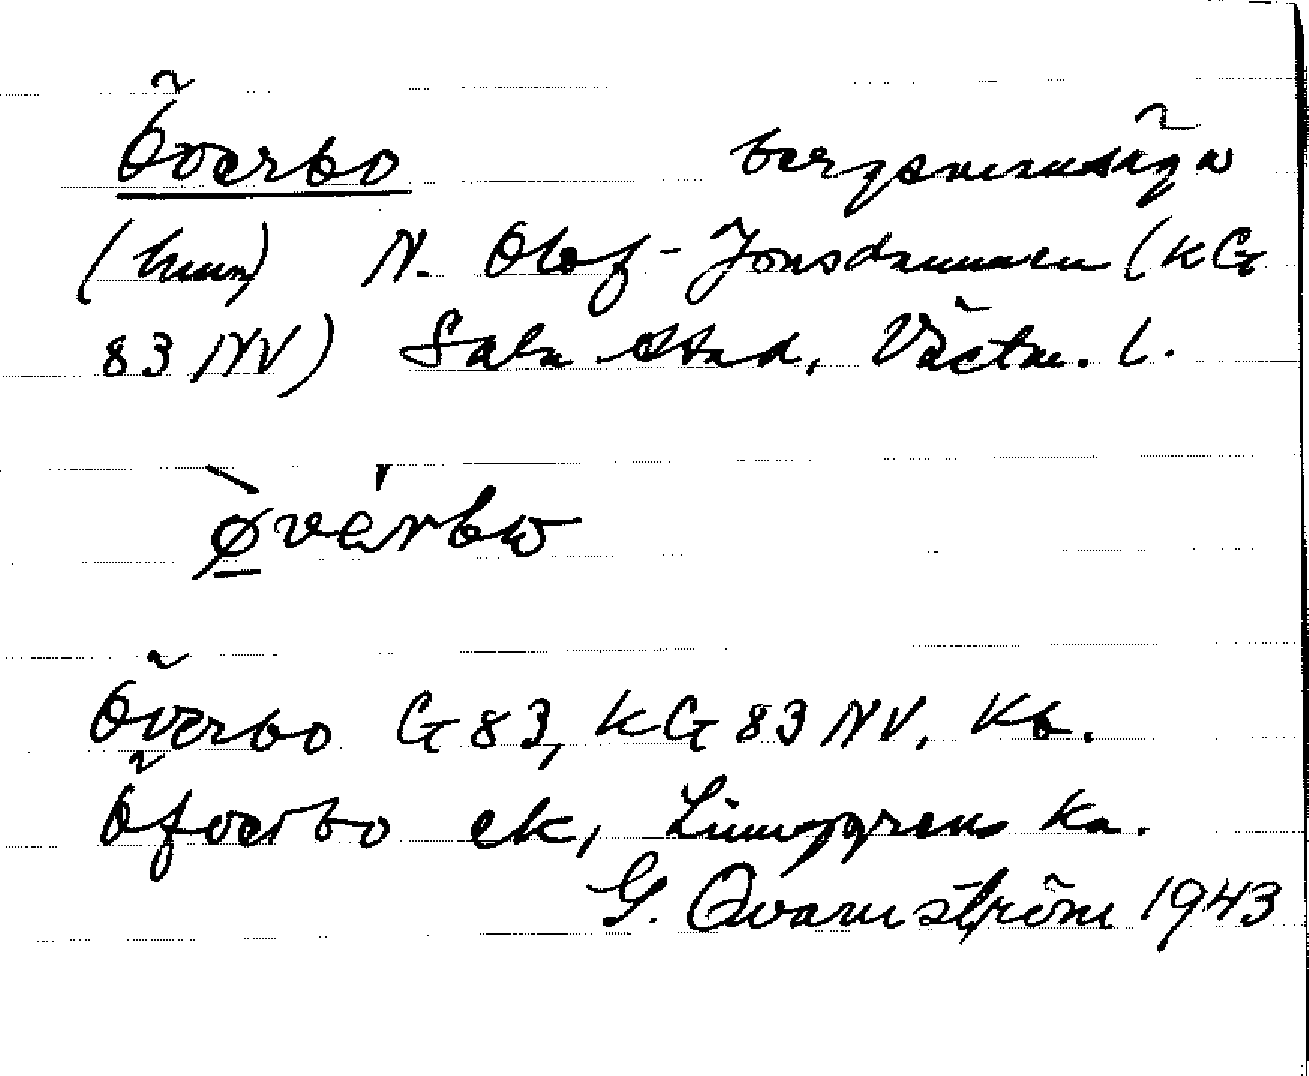 Överbo bergsmansäga
(hum) N. Olof-Jonsdammen (KG
83 NV) Sala stad, Västm. l.
ø̱̀vèrbω
Överbo G 83, KG 83 NV, Kb.
Öfverbo ek, Ljunggrens Ka.
G. Qvarnström 1943